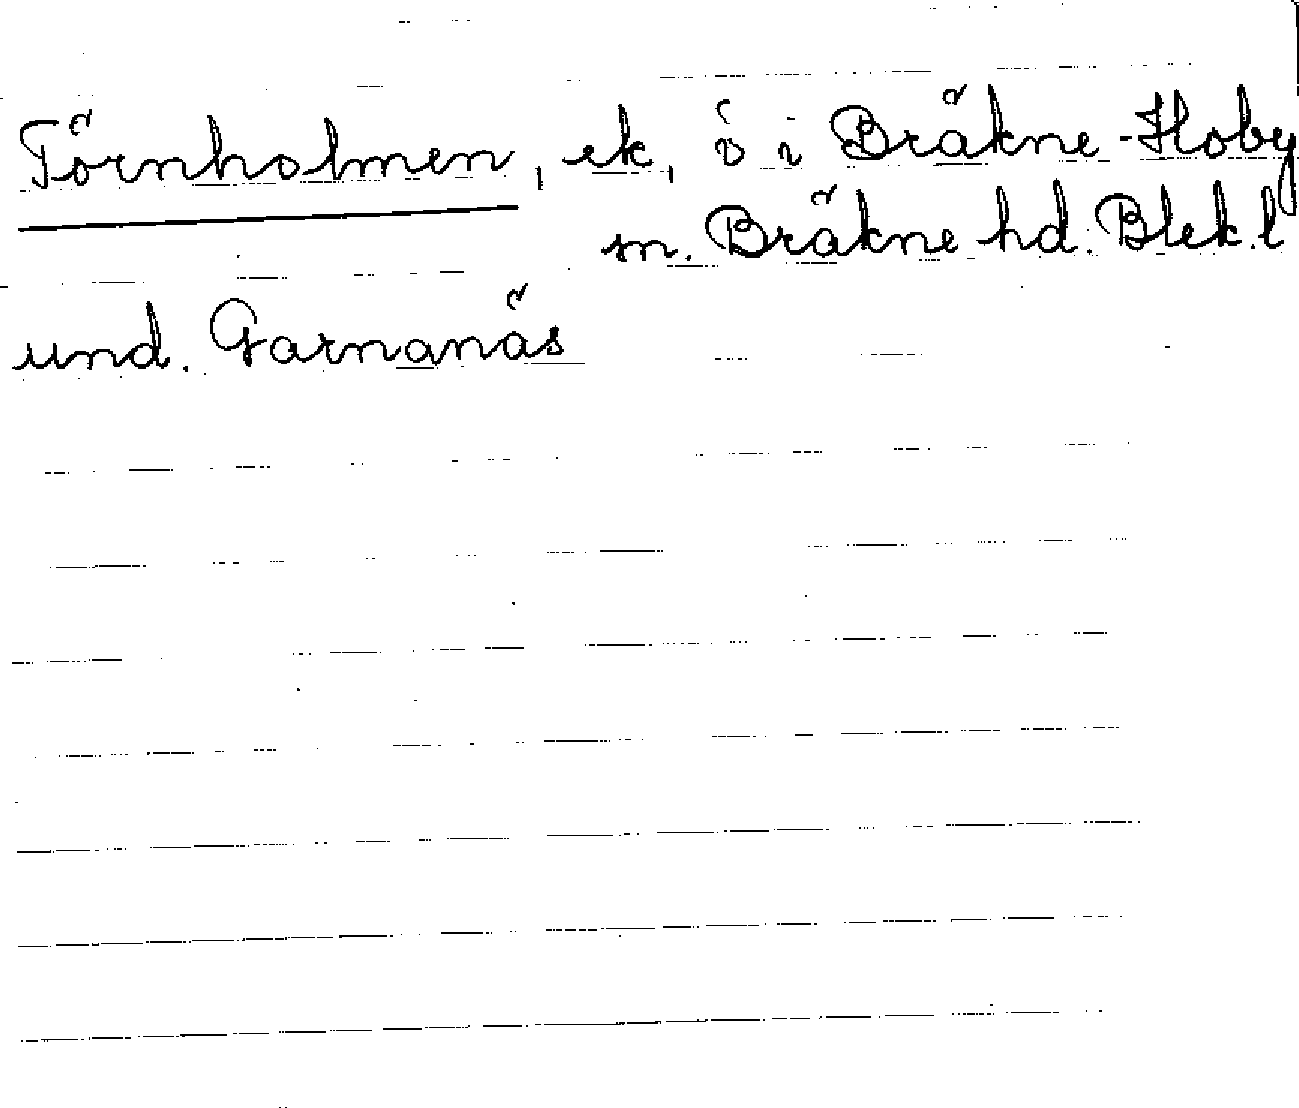 Törnholmen, ek, ö i Bräkne-Hoby
sn. Bräkne hd. Blek.l
und. Garnanäs